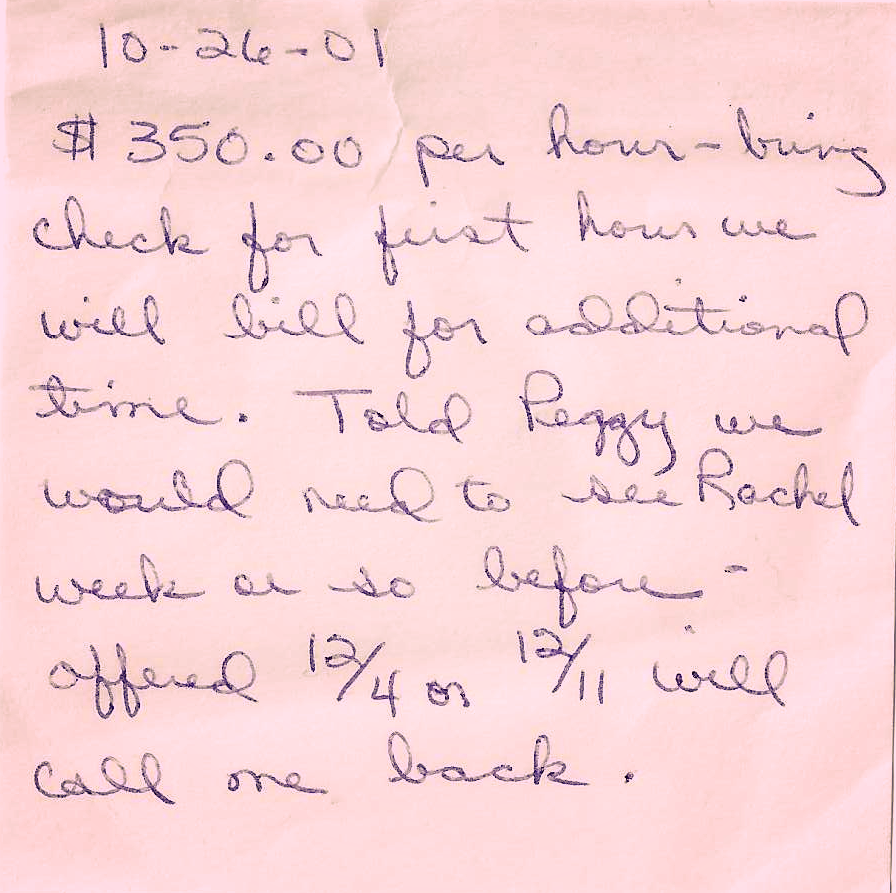 10-26-01
$350.00 per hour - bring
check for first hour we
will bill for additional
time. Told Peggy we
would need to see Rachel
week or so before -
offered 12/4 or 12/11 will
call me back.